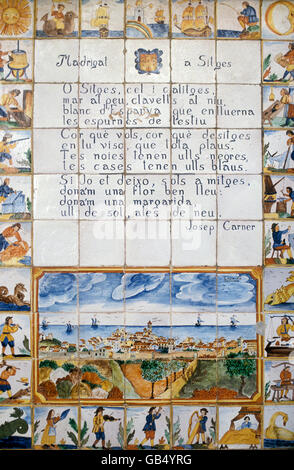 Madrigal a Sitges
O Sitges, cel i calitges,
mar al peu, clavells al niu;
blanc d'Espanya que enlluerna
les espurnes de l'estiu.
Cor què vols, cor que desitges
en tu viso que tota plaus.
Tes noies tenen ulls negres,
tes cases tenen ulls blaus.
Si jo et deixo, sols a mitges,
dona'm una flor ben lleu:
dona'm una margarida,
ull de sol, ales de neu.
Josep Carner
alamy
Image ID: B8GYRG
www.alamy.com